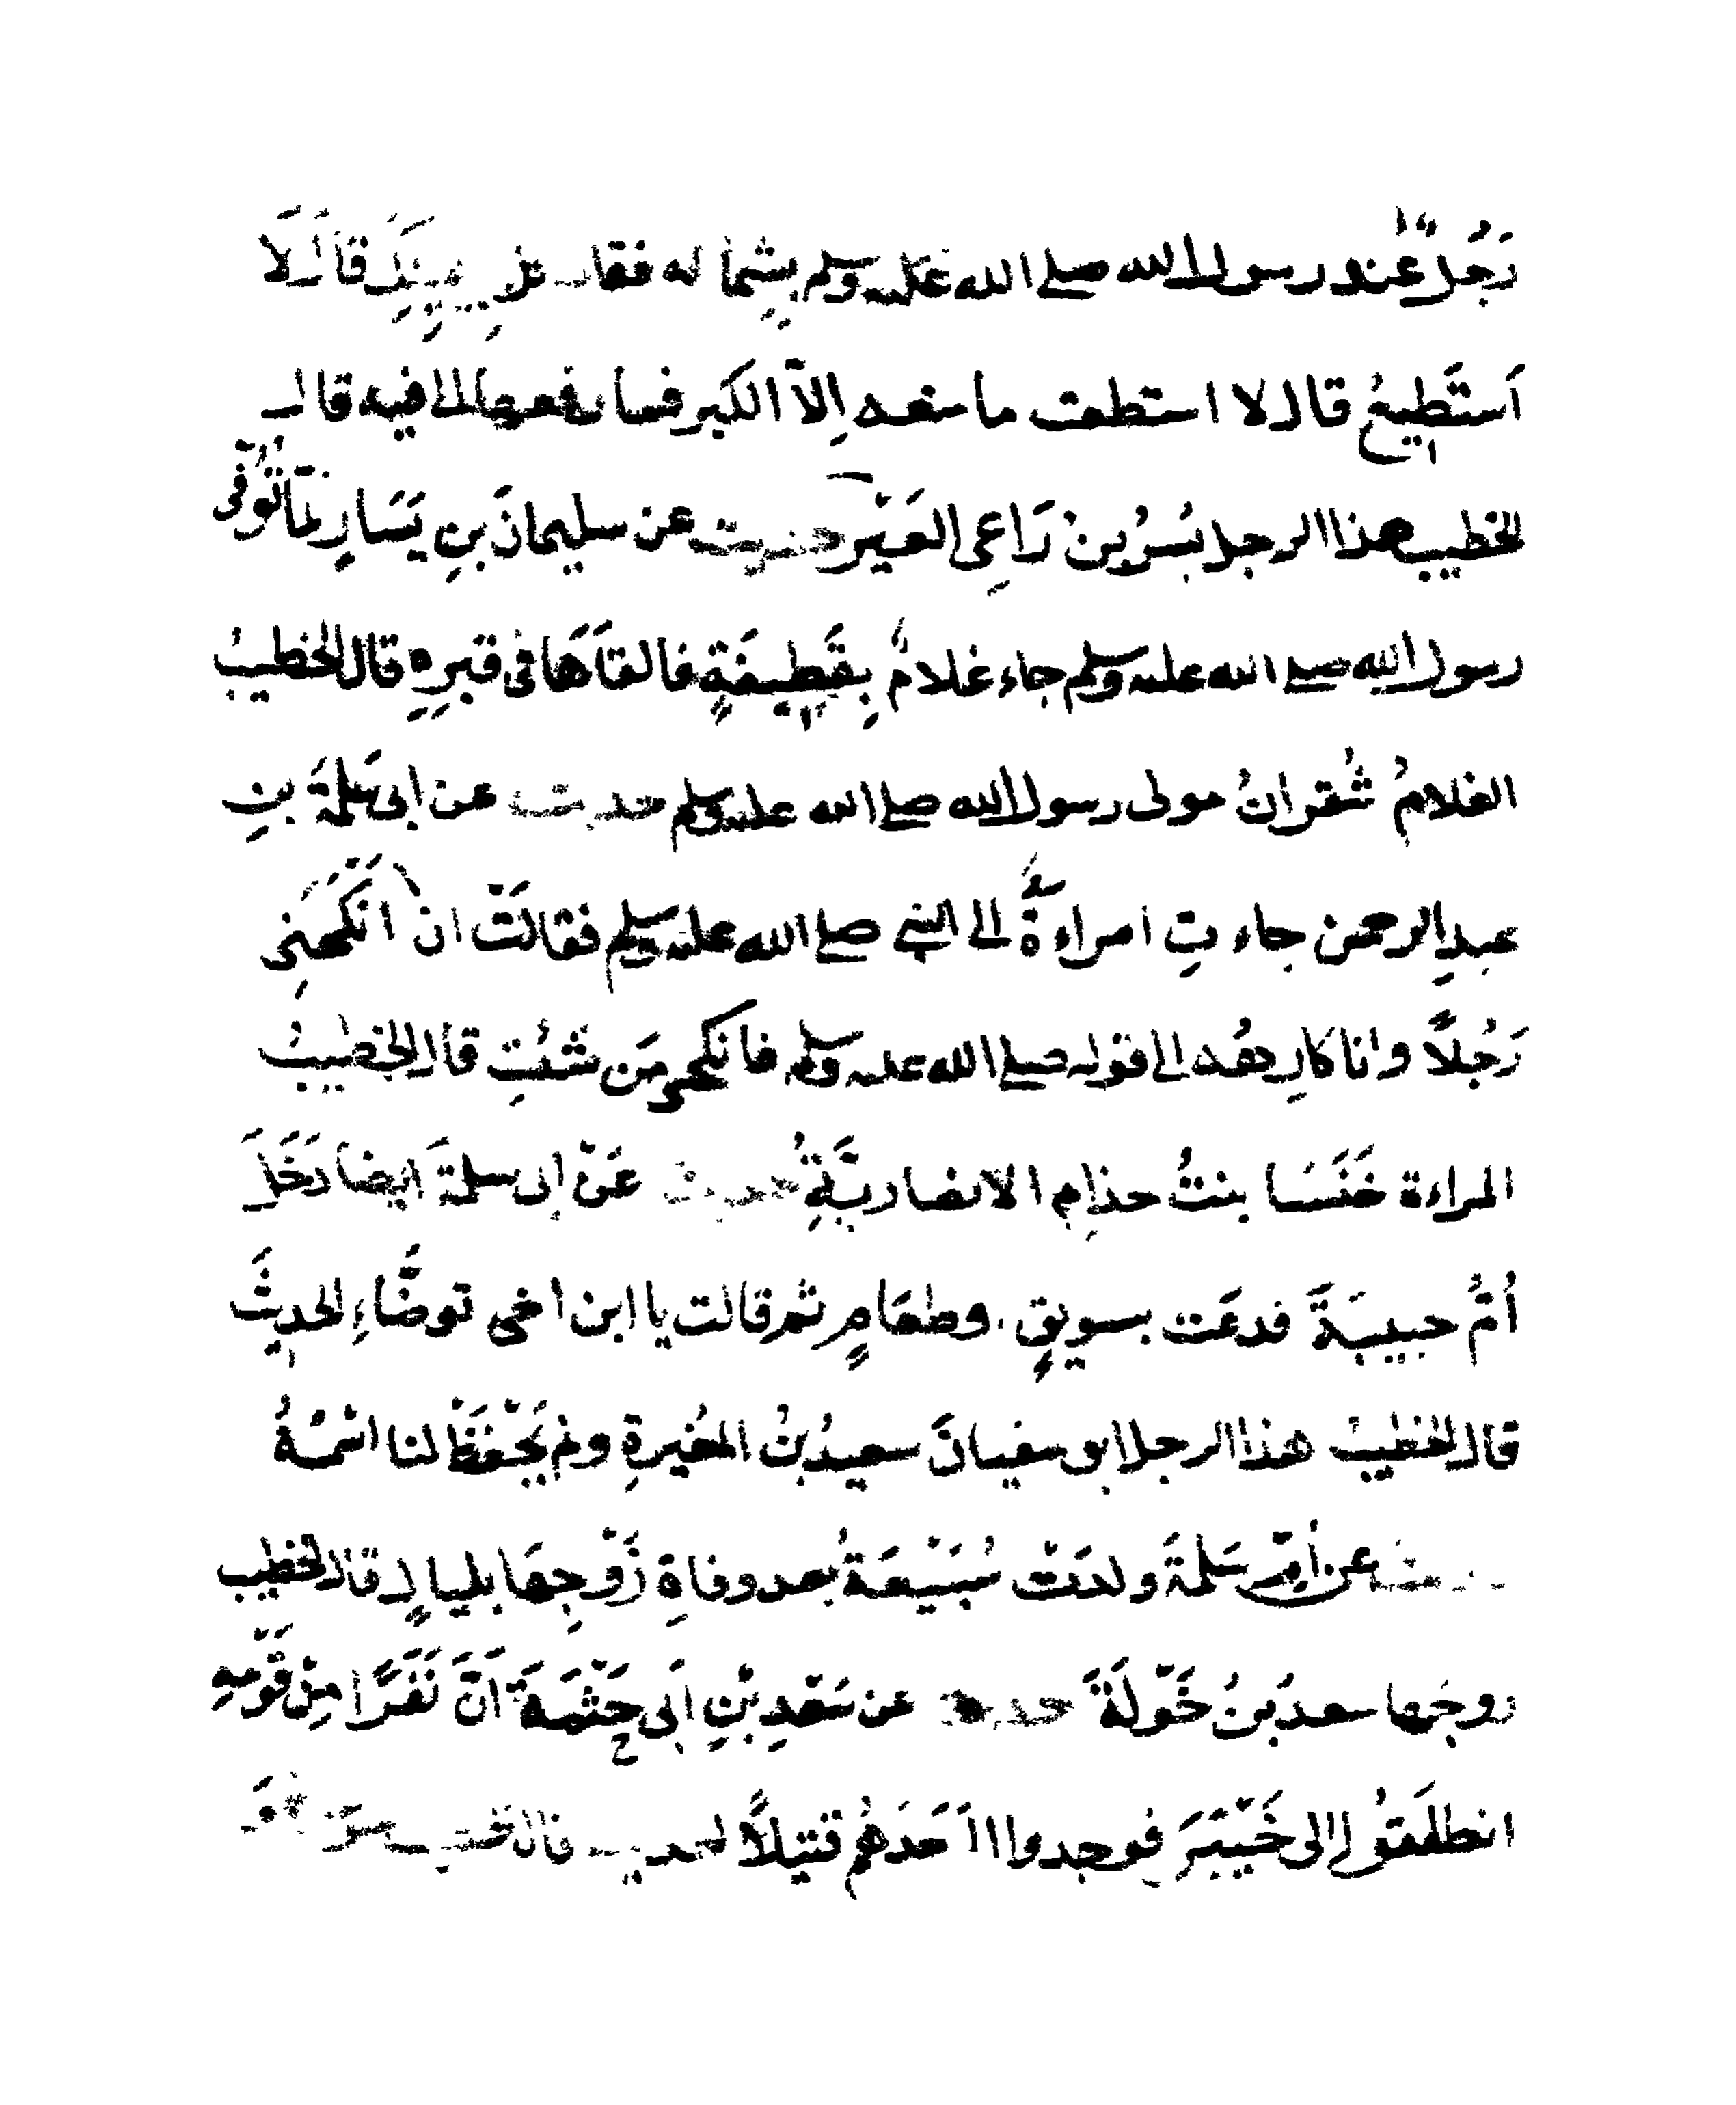 رَجُلٌ عند رسول الله صلى الله عليه وسلم بِشِماله فقال كل بِيَمِينِكَ قال لَا
أَستَطِيعُ قال لا استطعت ما منعه إِلّا الكبر فما رفعها الى فيه قال
الخطيب هذا الرجل بُسْرُ بنُ رَاعِي العَيْر حديث عن سليمانَ بنِ يَسَارٍ لمّا تُوُفّى
رسول الله صلى الله عليه وسلم جاء غلامٌ بِقَطِيفَةٍ فالقَاهَا فى قبرِهِ قال الخطيبُ
الغلامُ شُقرانُ مولى رسول الله صلى الله عليه وسلم حديث عن ابى سَلمَةَ بنِ
عبدِ الرحمن جاءتِ امراءةٌ الى النبي صلى الله عليه وسلم فقالتْ ان ابى انْكَحَنِى
رَجُلاً وانا كارِهُه الى قوله صلى الله عليه وسلم فانكحى مَن شئتِ قال الخطيبُ
المراءة خَنْسَا بنتُ حذامِ الانصاريَّةِ حديث عَنْ ابى سلمةَ ايضا دَخَلَ
أُمُّ حبيبَةَ فدعَت بسويقٍ وطعَامٍ ثم قالت يا ابن اخى توضَّاءِ الحديثَ
قال الخطيبُ هذا الرجل ابو سفيانَ سعيدُ بنُ المغيرةِ ولم يُحْفَظْ لنا اسْمُهُ
حديث عن أمِّ سَلمةَ ولدَتْ سُبَيْعَةُ بعد وفاةِ زَوْجِهَا بليالٍ قال الخطيب
زوجُها سعدُ بنُ خَوْلَةَ حديث عن سَعْدِ بْنِ أَبى حَثْمَةَ أَنَّ نَفَرًا مِنْ قَوْمِهِ
انطلَقُوا الى خَيْبَرَ فوجدوا أَحَدَهُم قتيلاً الحديث قال الخطيب